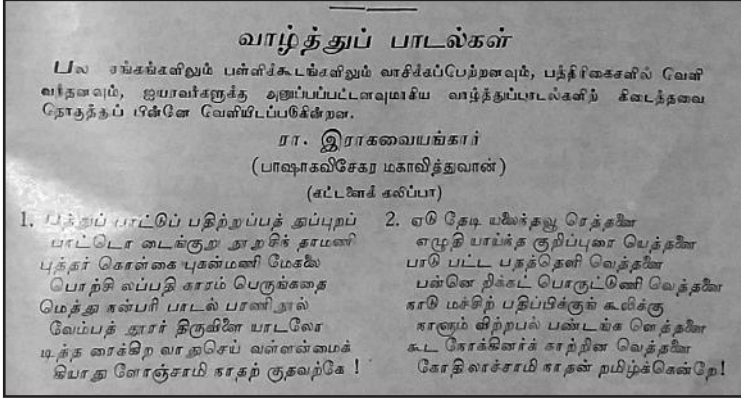 வாழ்த்துப் பாடல்கள்
பல சங்கங்களிலும் பள்ளிக்கூடங்களிலும் வாசிக்கப்பெற்றனவும், பத்திரிகைகளில் வெளி
வந்தனவும், ஐயரவர்களுக்கு அனுப்பப்பட்டனவுமாகிய வாழ்த்துப்பாடல்களிற் கிடைத்தவை
தொகுத்துப் பின்னே வெளியிடப்படுகின்றன.
ரா. இராகவையங்கார்
(பாஷாகவிசேகர மகாவித்துவான்)
(கட்டளைக் கலிப்பா)
1. பத்துப் பாட்டுப் பதிற்றுப்பத் துப்புறப்
பாட்டொ டைங்குறு நூறசிந் தாமணி
புத்தர் கொள்கை புகன்மணி மேகலை
பொற்சி லப்பதி காரம் பெருங்கதை
மெத்து நன்பரி பாடல் பாணிநூல்
வேம்பத் தூரர் திருவிளை யாடலோ
டித்த ரைக்கிற வாதுசெய் வள்ளன்மைக்
கியாது ளோஞ்சாமி நாதற் குதவற்கே !
2. ஏடு தேடி யலைந்தவூ ரெத்தனை
எழுதி யாய்ந்த குறிப்புரை யெத்தனை
பாடு பட்ட பதத்தெளி வெத்தனை
பன்னெ றிக்கட் பொருட்டுணி வெத்தனை
நாடு மச்சிற் பதிப்பிக்குங் கூலிக்கு
நாளும் விற்றபல் பண்டங்க ளெத்தனை
கூட நோக்கினர்க் காற்றின வெத்தனை
கோதிலாச்சாமி நாதன் றமிழ்க்கென்றே!